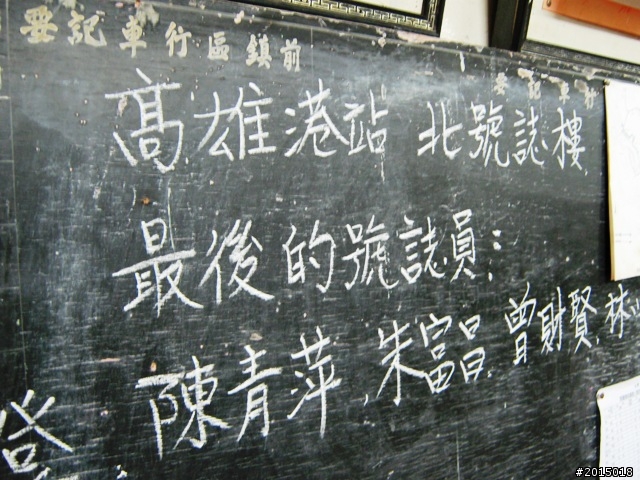 前鎮區行車記要
高雄港站 北號誌樓
最後的號誌員:
陳青萍,朱富昌 曾財賢 林
#2015018